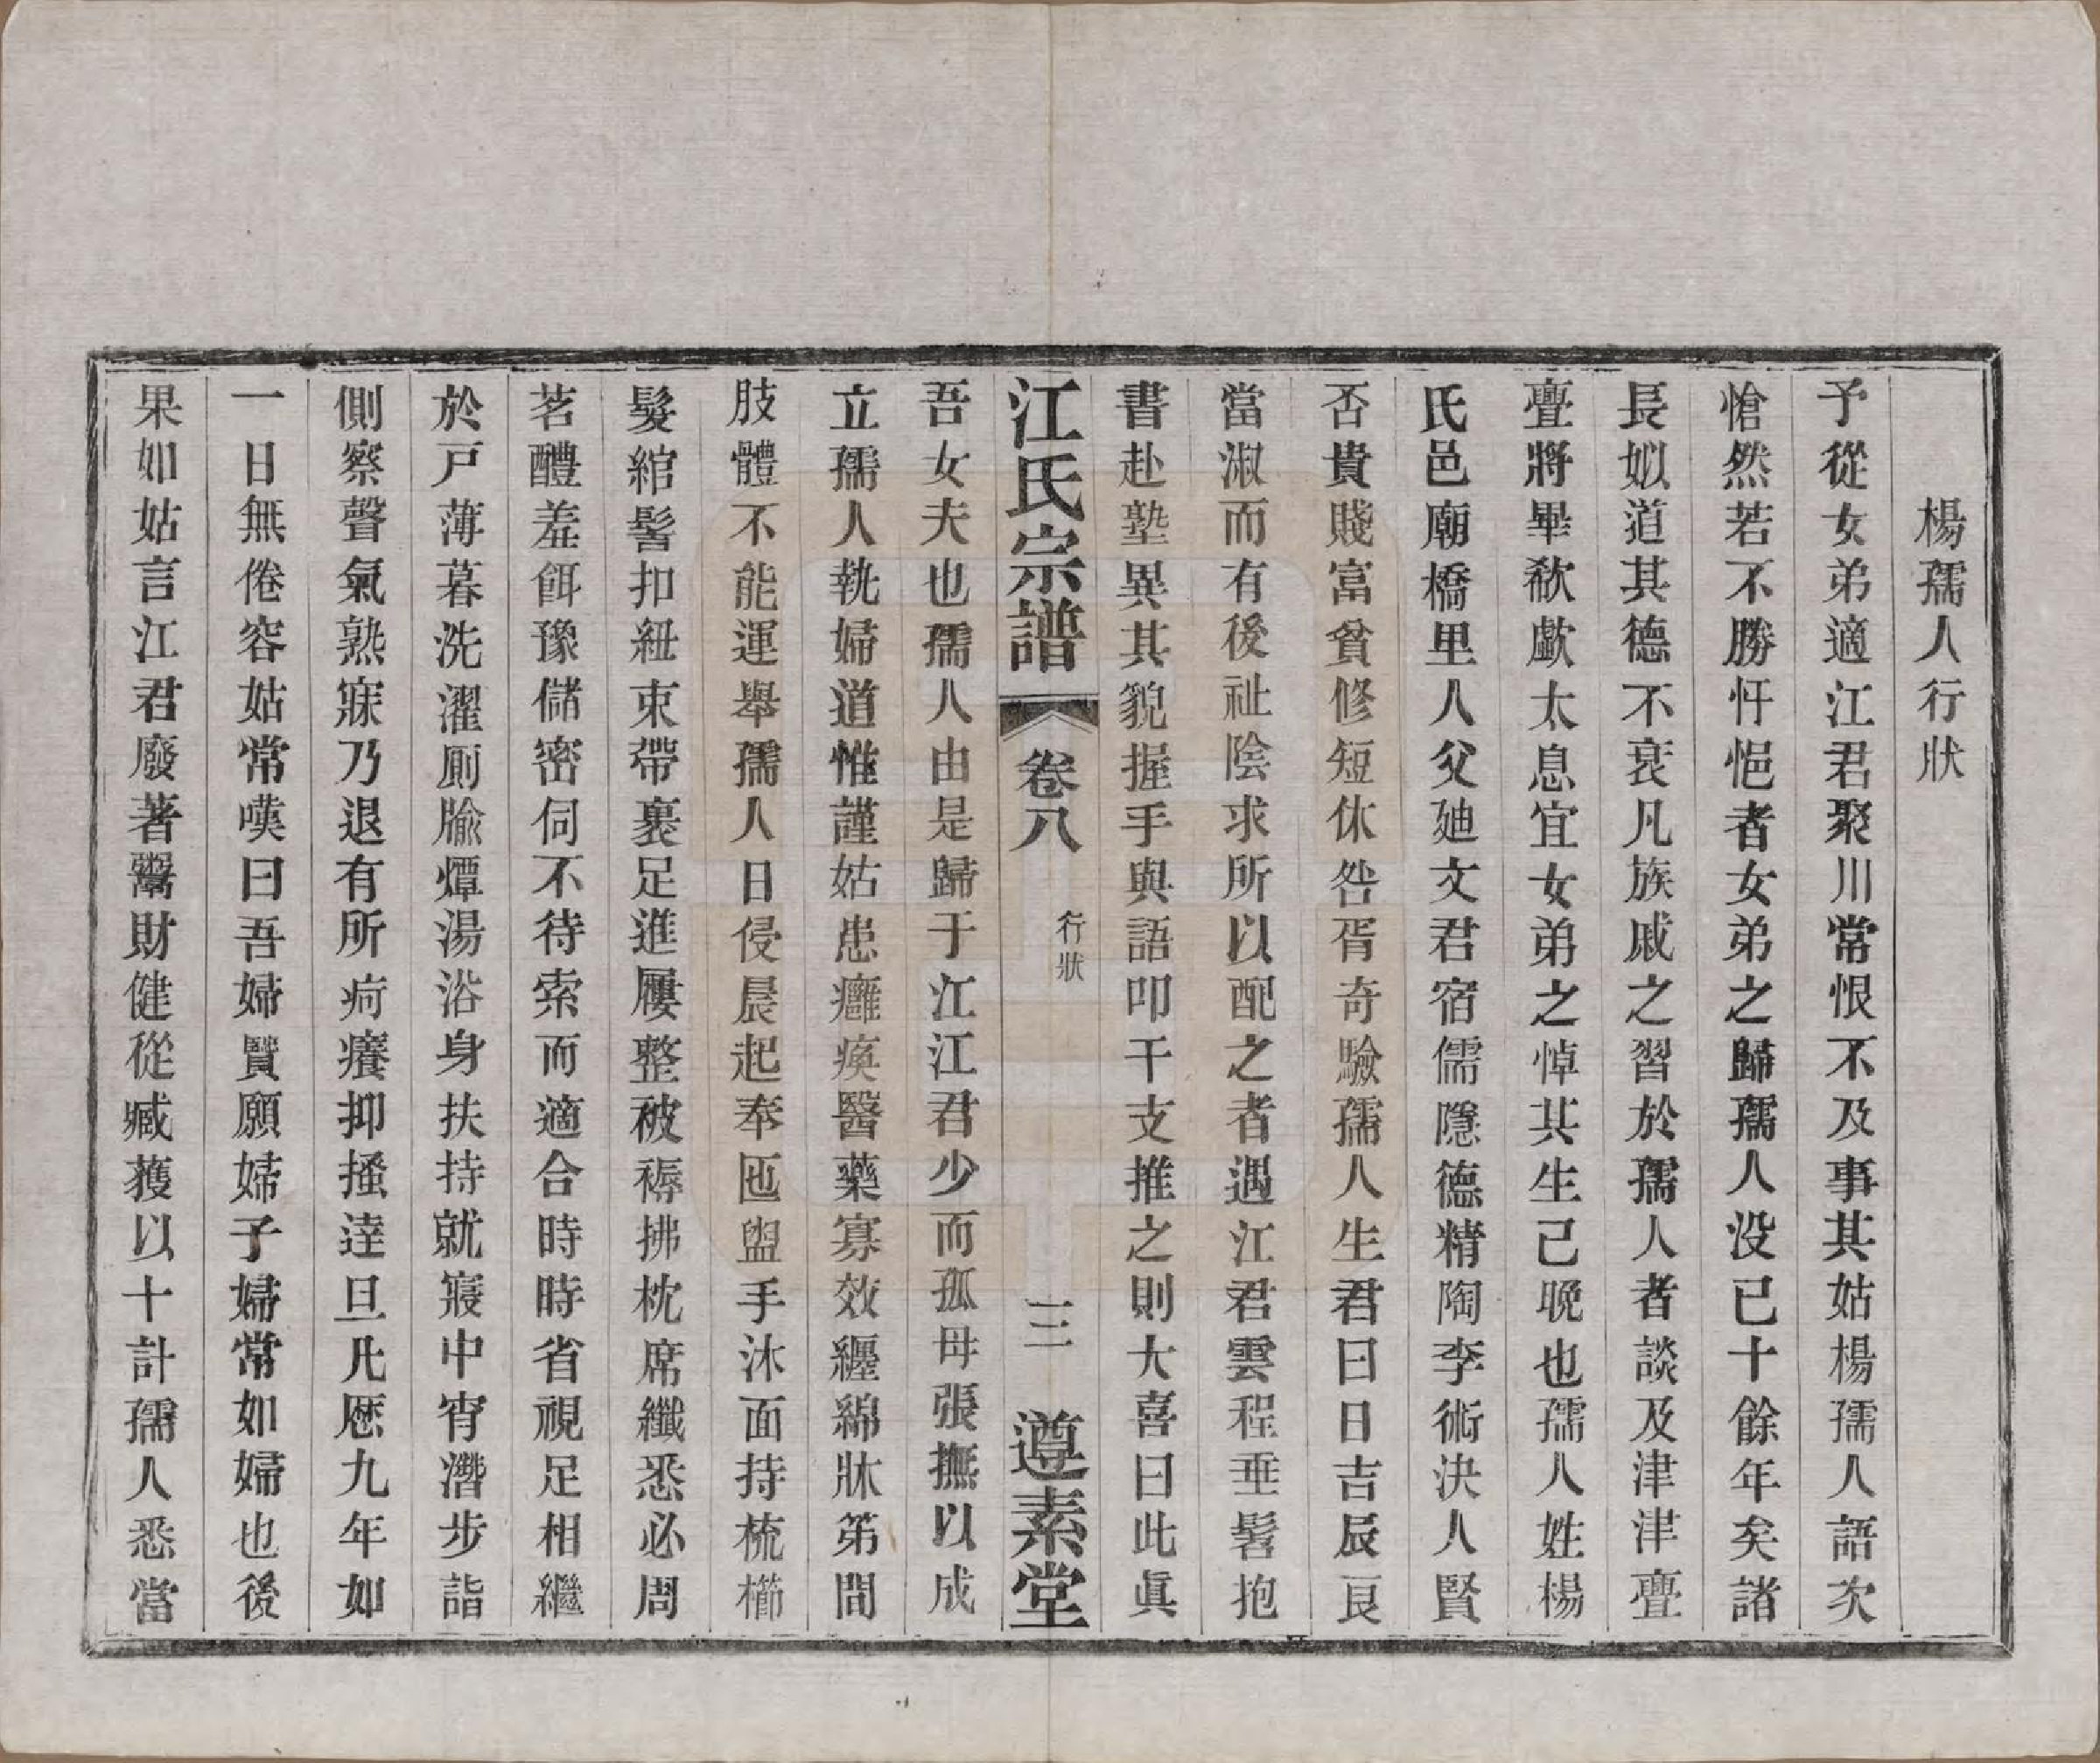 楊孺人行狀
予從女弟適江君聚川常恨不及事其姑楊孺人語次
愴然若不勝忓悒者女弟之歸孺人没已十餘年矣諸
長姒道其德不衰凡族戚之習於孺人者談及津津亹
亹將畢欷歔太息宜女弟之悼其生己晚也孺人姓楊
氏邑廟橋里人父廸文君宿儒隱德精陶李術決人賢
否貴賤富貧修短休咎胥奇驗孺人生君曰日吉辰良
當淑而有後祉陰求所以配之者遇江君雲程垂髫抱
書赴塾異其貌握手與語叩干支推之則大喜曰此眞
江氏宗譜 卷八 行狀 三 遵素堂
吾女夫也孺人由是歸于江江君少而孤母張撫以成
立孺人執婦道惟謹姑患癰瘓醫藥寡效纒綿牀第間
肢體不能運舉孺人日侵晨起奉匜盥手沐面持梳櫛
髮綰髻扣紐束帶裹足進屨整被褥拂枕席纖悉必周
茗醴羞餌豫儲密伺不待索而適合時時省視足相繼
於戸薄暮洗濯厠牏燂湯浴身扶持就寢中宵潛步詣
側察聲氣熟寐乃退有所疴癢抑搔逹旦凡厯九年如
一日無倦容姑常嘆曰吾婦賢願婦子婦常如婦也後
果如姑言江君廢著鬻財健從臧獲以十計孺人悉當